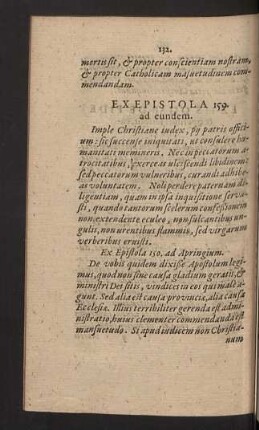 132.
mortis sit, & propter conscientiam nostram,
& propter Catholicam mansuetudinem com-
mendandam.
EX EPISTOLA 159.
ad eundem.
Imple Christiane iudex, pij patris offici-
um: sic succense iniquitati, ut consulere hu-
manitati memineris. Nec in peccatorum a-
trocitatibus, exerceas ulciscendi libidinem:
sed peccatorum vulneribus, curandi adhibe-
as voluntatem. Noli perdere paternam di-
ligentiam, quam in ipsa inquisitione serva-
sti, quando tantorum scelerum confessionem
non extendente eculeo, non sulcantibus un-
gulis, non urentibus flammis, sed virgarum
verberibus eruisti.
Ex Epistola 150. ad Apringium.
De vobis quidem dixisse Apostolum legi-
mus, quod non sine causa gladium geratis, &
ministri Dei sitis, vindices in eos qui male a-
gunt. Sed alia est causa provinciæ, alia causa
Ecclesiæ. Illius terribiliter gerenda est admi-
nistratio, huius clementer commendanda est
mansuetudo. Si apud iudicem non Christia-
num